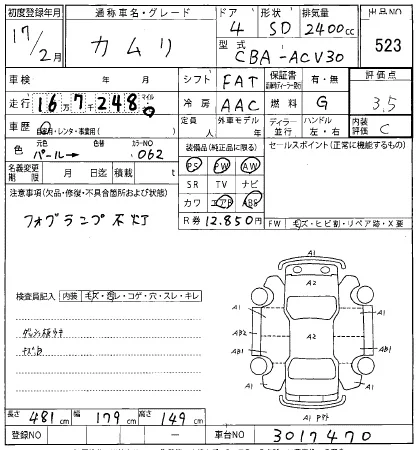 初度登録年月 通称車名・グレード ドア 形状 排気量 出品NO
17/2月 カムリ 4 SD 2400cc 523
型式 CBA-ACV30
車検 年 月 シフト FAT 保証書 有・無 評価点
走行 16万7千248 マイル km 冷房 AAC 燃料 G 3.5
車歴 自家用・レンタ・事業用( ) 定員 人 外車モデル 年 ディーラー 並行 ハンドル 左・右 内装評価 C
色 パール→ 色替 カラーNO 062 装備品(純正品に限る) セールスポイント(正常に機能するもの)
名義変更期限 月 日迄 積載 t PS PW AW
注意事項(欠品・修復・不具合箇所および状態) SR TV ナビ
フォグランプ不灯 カワ エアB ABS
R券 12.850円 FW 毛ズ・ヒビ割・リペア跡・X要
A1
検査員記入 内装 キズ・汚レ・コゲ・穴・スレ・キレ
A2
A1 A1
AB2 A2
キズB AB1 AB1
A1
A1 P84
長さ 481cm 幅 179cm 高さ 149cm
登録NO — 車台NO 3017470